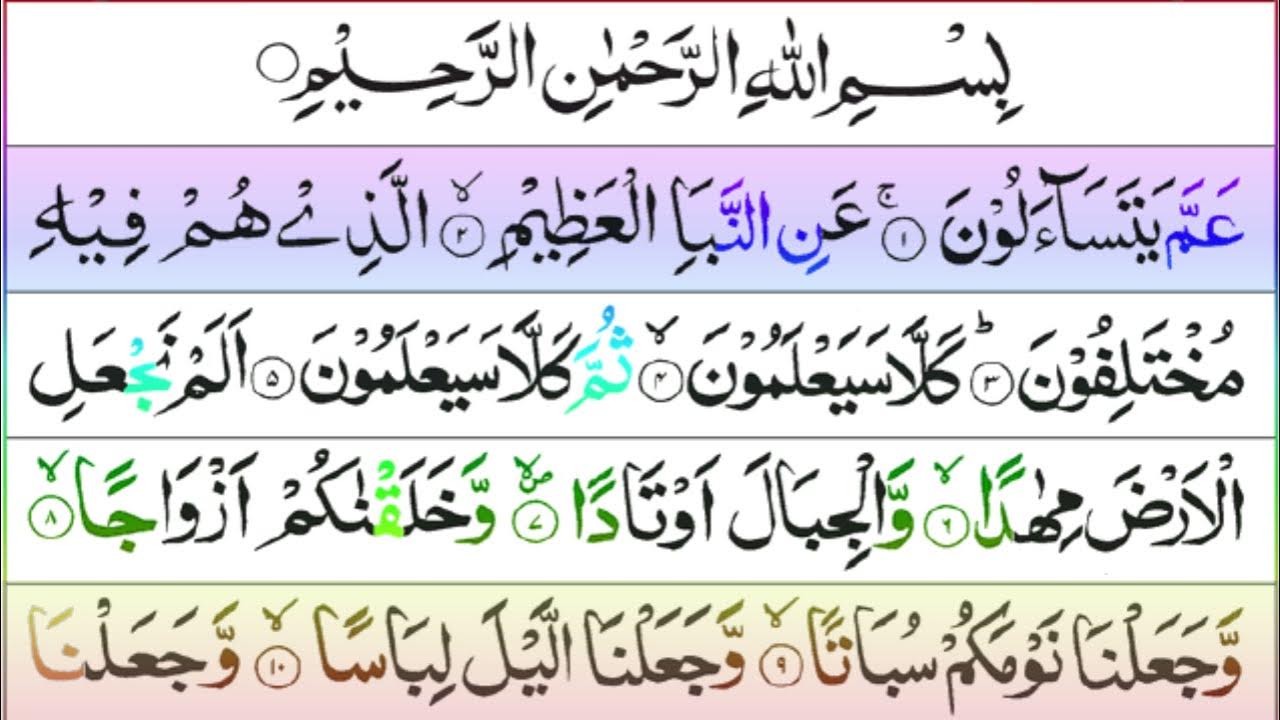 بِسْمِ اللّٰهِ الرَّحْمٰنِ الرَّحِيْمِ ۝
عَمَّ يَتَسَآءَلُوْنَ ۚ ۝۱ عَنِ النَّبَاِ الْعَظِيْمِ ۙ ۝۲ الَّذِيْ هُمْ فِيْهِ
مُخْتَلِفُوْنَ ؕ ۝۳ كَلَّا سَيَعْلَمُوْنَ ۙ ۝۴ ثُمَّ كَلَّا سَيَعْلَمُوْنَ ۝۵ اَلَمْ نَجْعَلِ
الْاَرْضَ مِهٰدًا ۙ ۝۶ وَّالْجِبَالَ اَوْتَادًا ۪ۙ ۝۷ وَّخَلَقْنٰكُمْ اَزْوَاجًا ۙ ۝۸
وَّجَعَلْنَا نَوْمَكُمْ سُبَاتًا ۙ ۝۹ وَّجَعَلْنَا الَّيْلَ لِبَاسًا ۙ ۝۱۰ وَّجَعَلْنَا